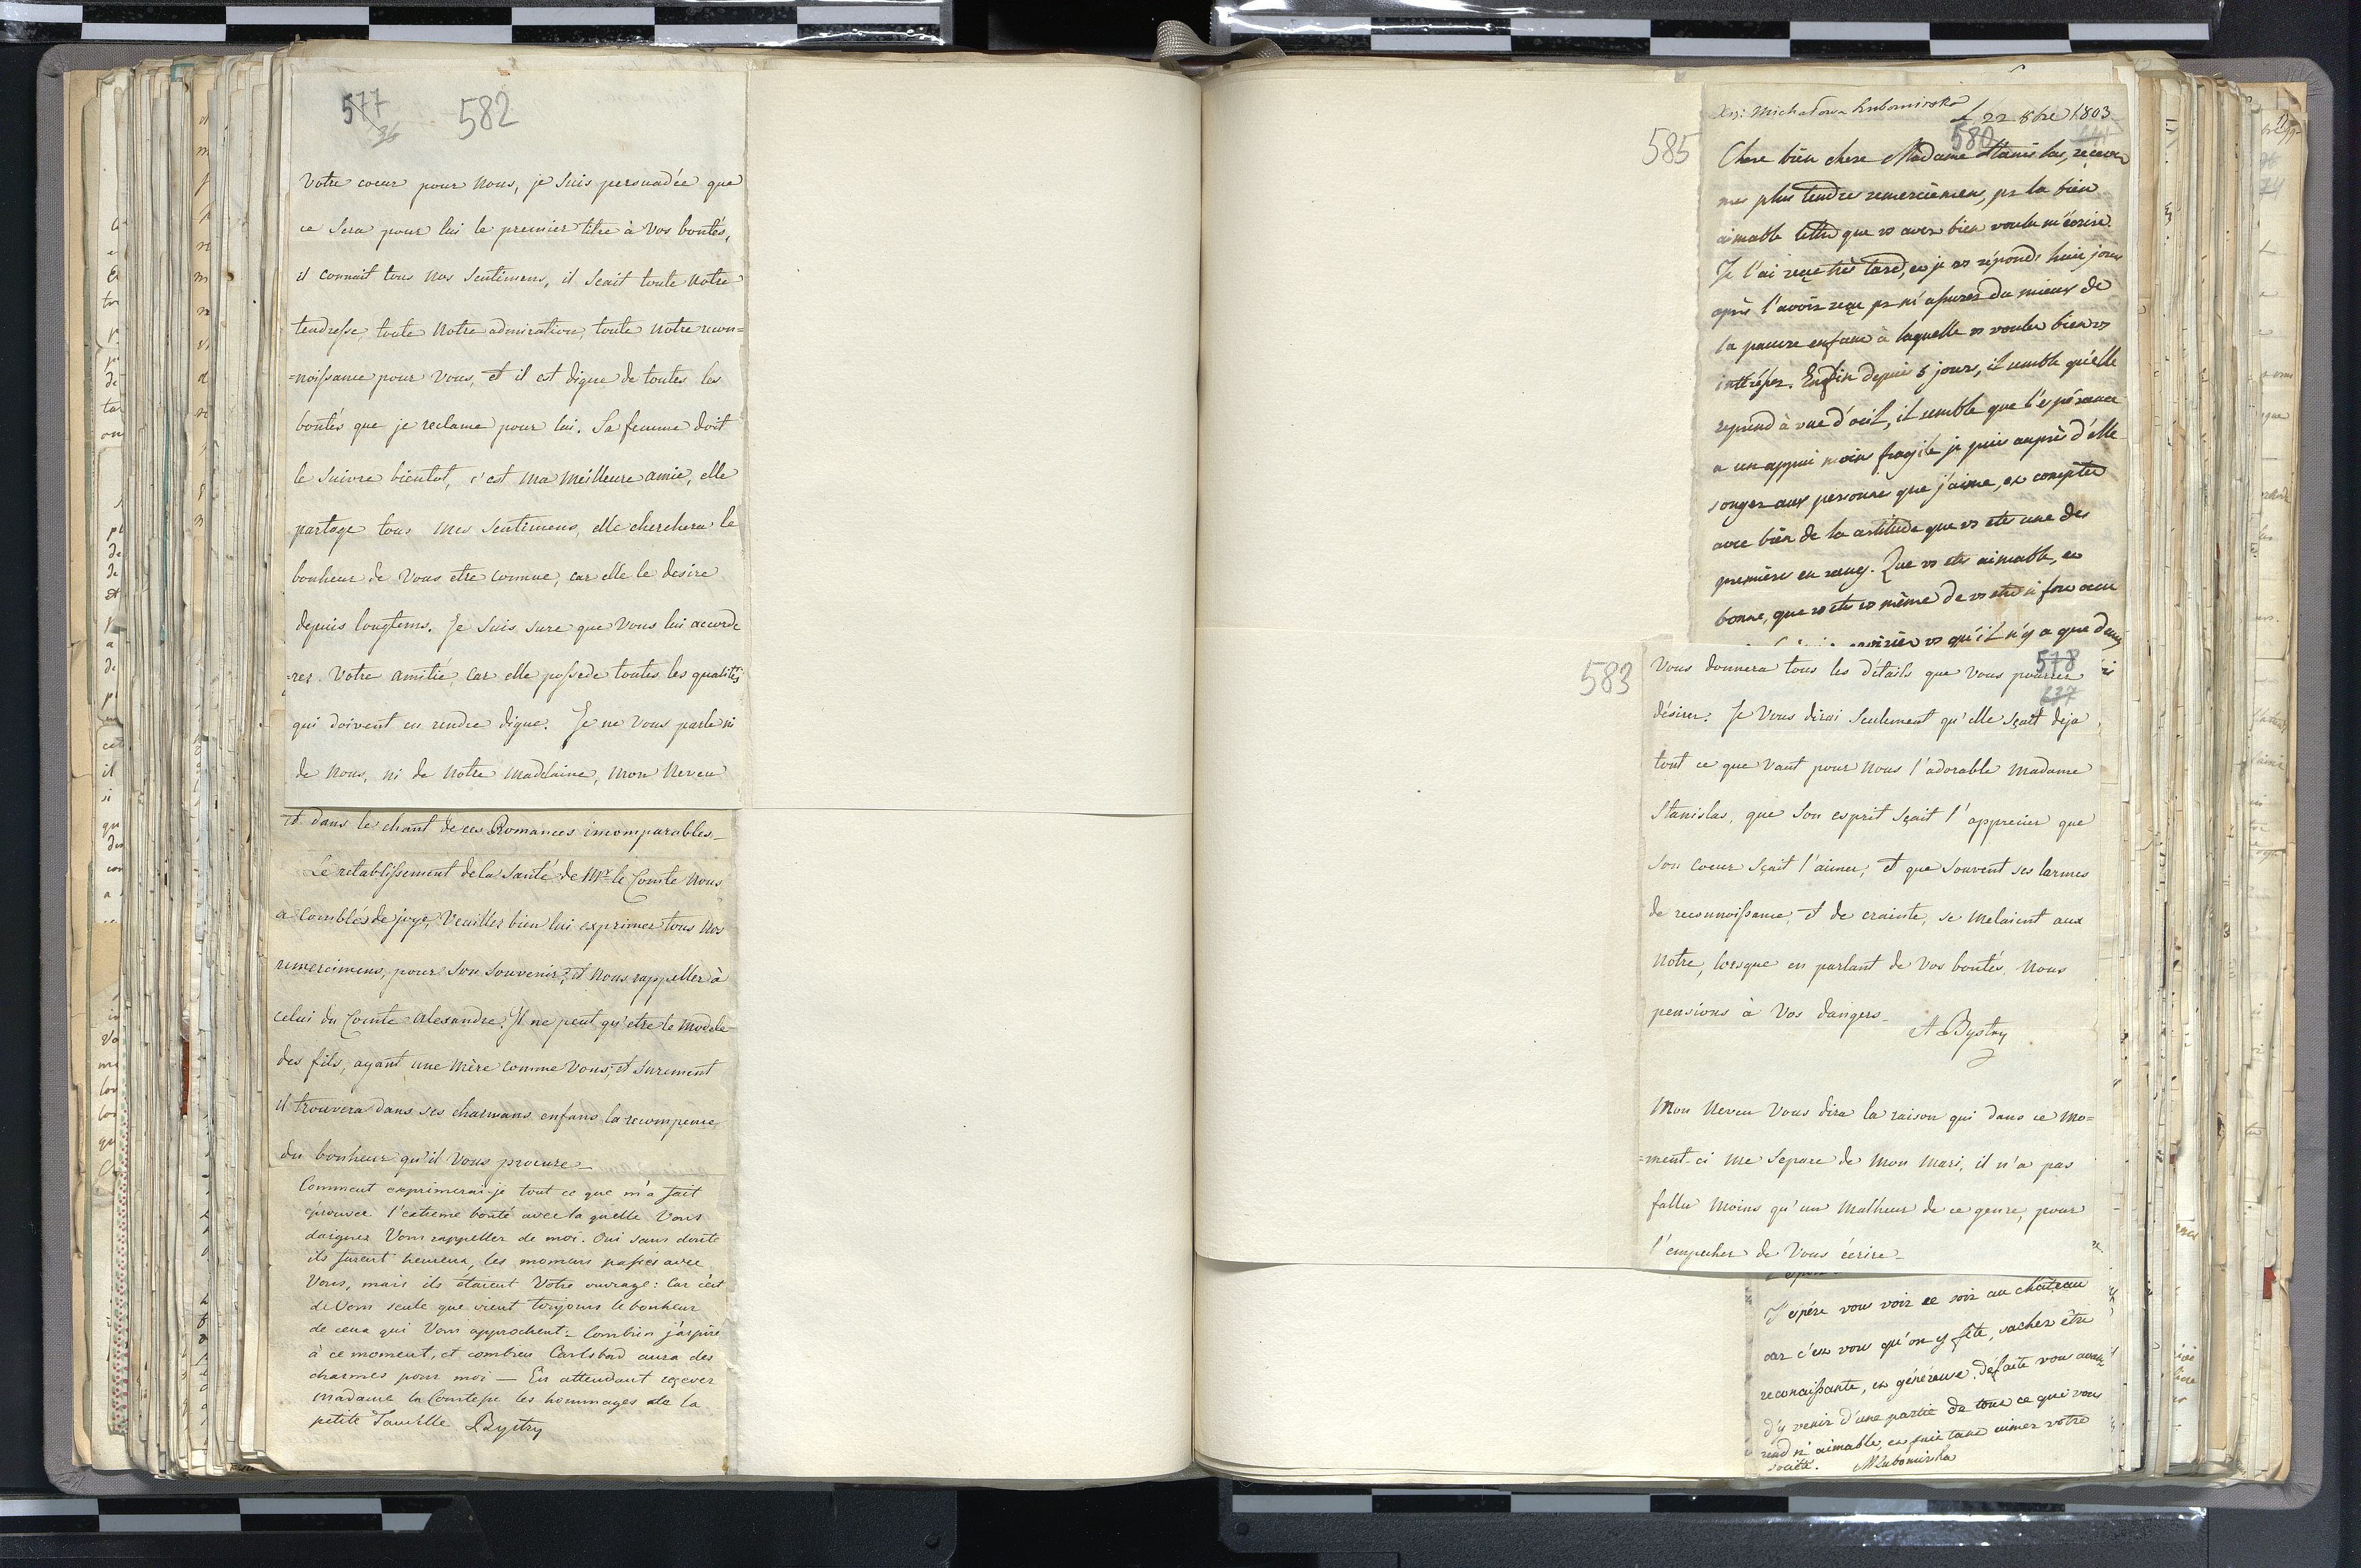 577
36
582
Votre coeur pour Nous, je suis persuadée que
ce sera pour lui le premier titre à Vos bontés,
il connait tous Nos Sentimens, il Scait toute Notre
tendresse, toute Notre admiration, toute Notre recon=
=noissance pour Vous, et il est digne de toutes les
bontés que je reclame pour lui. Sa femme doit
le Suivre bientot, c'est Ma Meilleure amie, elle
partage tous Mes Sentimens, elle cherchera le
bonheur de Vous etre connue, car elle le desire
depuis longtems. Je Suis sure que Vous lui accorde
=rez Votre amitié, Car elle possede toutes les qualités
qui doivent en rendre digne. Je ne Vous parle ni
de Nous, ni de Notre Madelaine, Mon Neveu
et dans le chant de ces Romances incomparables_
Le retablissement de la Santé de Mr le Comte Nous
a Comblés de joye, Veuillez bien lui exprimer tous Nos
remercimens, pour Son Souvenir, et Nous rappeller à
celui du Comte Alexandre. Il ne peut qu'etre le Modele
des fils, ayant une Mère comme Vous, et Surement
il trouvera dans ses charmans enfans la recompense
du bonheur qu'il Vous procure_
Comment exprimerai-je tout ce que m'a fait
éprouver l'extreme bonté avec la quelle Vous
daignez Vous rappeller de moi. Oui sans doute
ils furent heureux, les momens passés avec
Vous, mais ils étaient Votre ouvrage: Car c'est
de Vous seule que vient toujours le bonheur
de ceux qui Vous approchent_ Combien j'aspire
à ce moment, et combien Carlsbad aura des
charmes pour moi — En attendant recever
Madame la Comtesse les hommages de la
petite Famille Bystry
Xsi: Michałowa Lubomirska
22 8bre 1803
585
580
Chere bien chere Madame Stanislas, recever
mes plus tendre remerciemens, pr la bien
aimable lettre que vs avez bien voulu m'écrire.
Je l'ai reçue très tard, et je vs réponds huit jours
après l'avoir reçue pr m'assurer du mieux de
la pauvre enfant à laquelle vs voulez bien vs
intéresser. Enfin depuis 5 jours, il semble qu'elle
reprend à vue d'oeil, il semble que l'espérance
a un appui moins fragile je puis auprès d'elle
songer aux personne que j'aime, et compter
avec bien de la certitude que vs etes une des
première en rang. Que vs etes aimable, et
bonne, que vs etes vs même de vs etre si fort
vs qu'il n'y a que deux
583
578
237
Vous donnera tous les détails que Vous pourrier
désirer. Je Vous dirai Seulement qu'elle Sçait deja
tout ce que Vaut pour Nous l'adorable Madame
Stanislas, que Son esprit Sçait l'apprecier que
Son Coeur Sçait l'aimer, et que Souvent ses larmes
de reconnoissance, et de crainte, se Melaient aux
Notre, lorsque en parlant de Vos bontés, Nous
pensions à Vos dangers_
A Bystry
Mon Neveu Vous dira la raison qui dans ce Mo=
=ment-ci Me Separe de Mon Mari, il n'a pas
fallu Moins qu'un Malheur de ce genre, pour
l'empecher de Vous écrire_
J'espére vous voir ce soir au château
car c'est vous qu'on y fête, sachez être
reconaissante, et généreuse. Defaite vous avant
d'y venir d'une partie de tout ce qui vous
rend si aimable, et fait tant aimer votre
société. MLubomirska